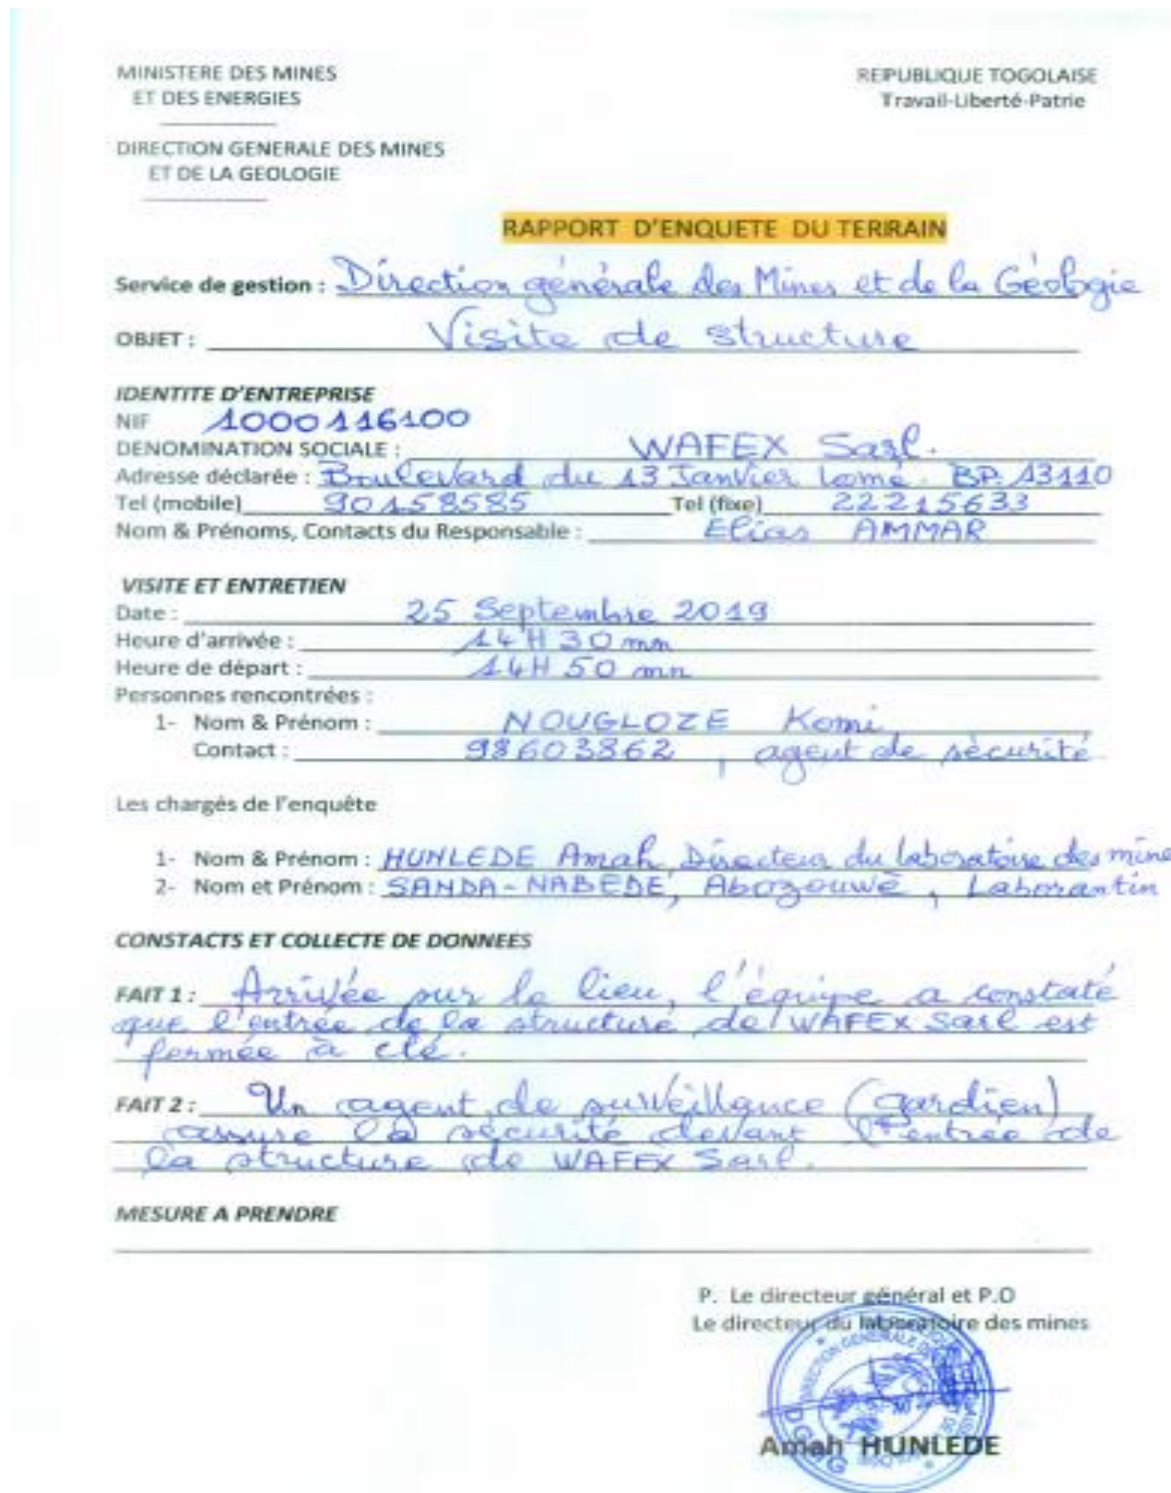 MINISTERE DES MINES
ET DES ENERGIES
REPUBLIQUE TOGOLAISE
Travail-Liberté-Patrie
DIRECTION GENERALE DES MINES
ET DE LA GEOLOGIE
RAPPORT D'ENQUETE DU TERRAIN
Service de gestion : Direction générale des Mines et de la Géologie
OBJET : Visite de structure
IDENTITE D'ENTREPRISE
NIF 1000116100
DENOMINATION SOCIALE : WAFEX Sarl.
Adresse déclarée : Boulevard du 13 Janvier Lomé. BP. 13110
Tel (mobile) 90158585 Tel (fixe) 22215633
Nom & Prénoms, Contacts du Responsable : Elias AMMAR
VISITE ET ENTRETIEN
Date : 25 Septembre 2019
Heure d'arrivée : 14H 30 mn
Heure de départ : 14H 50 mn
Personnes rencontrées :
1- Nom & Prénom : NOUGLOZE Komi
Contact : 98603862, agent de sécurité
Les chargés de l'enquête
1- Nom & Prénom : HUNLEDE Amah, Directeur du laboratoire des mine
2- Nom et Prénom : SANDA-NABEDE, Abozouwè, Laborantin
CONSTACTS ET COLLECTE DE DONNEES
FAIT 1 : Arrivée sur le lieu, l'équipe a constaté
que l'entrée de la structure de WAFEX Sarl est
fermée à clé.
FAIT 2 : Un agent de surveillance (gardien)
assure la sécurité devant l'entrée de
la structure de WAFEX Sarl.
MESURE A PRENDRE
P. Le directeur général et P.O
Le directeur du laboratoire des mines
Amah HUNLEDE